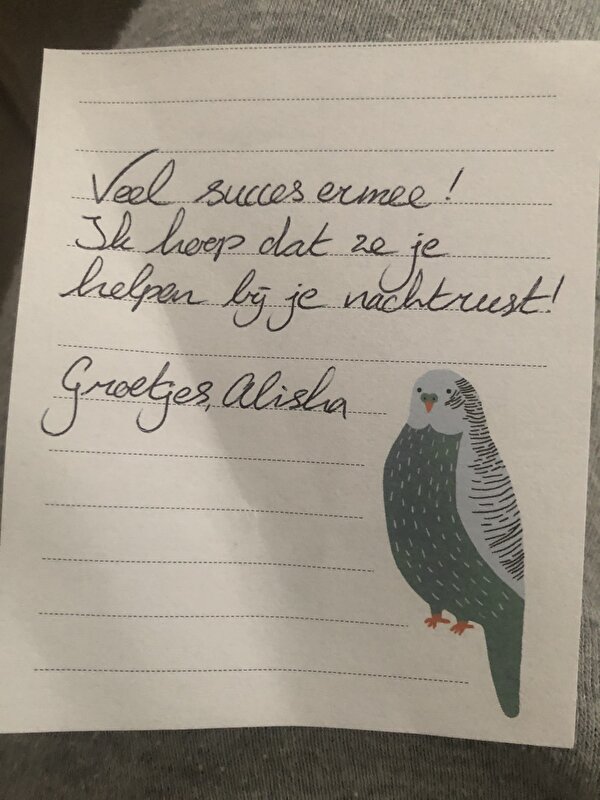 Veel succes ermee!
Ik hoop dat ze je
helpen bij je nachtrust!
Groetjes, Alisha